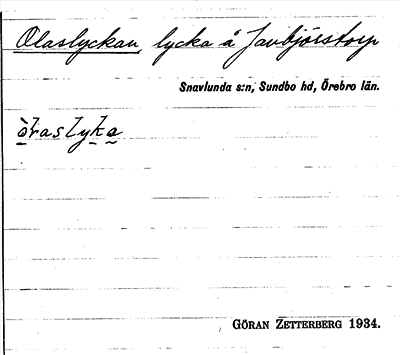 Olaslyckan, lycka å Javbjörstorp
Snavlunda s:n, Sundbo hd, Örebro län.
òłaslyka
GÖRAN ZETTERBERG 1934.